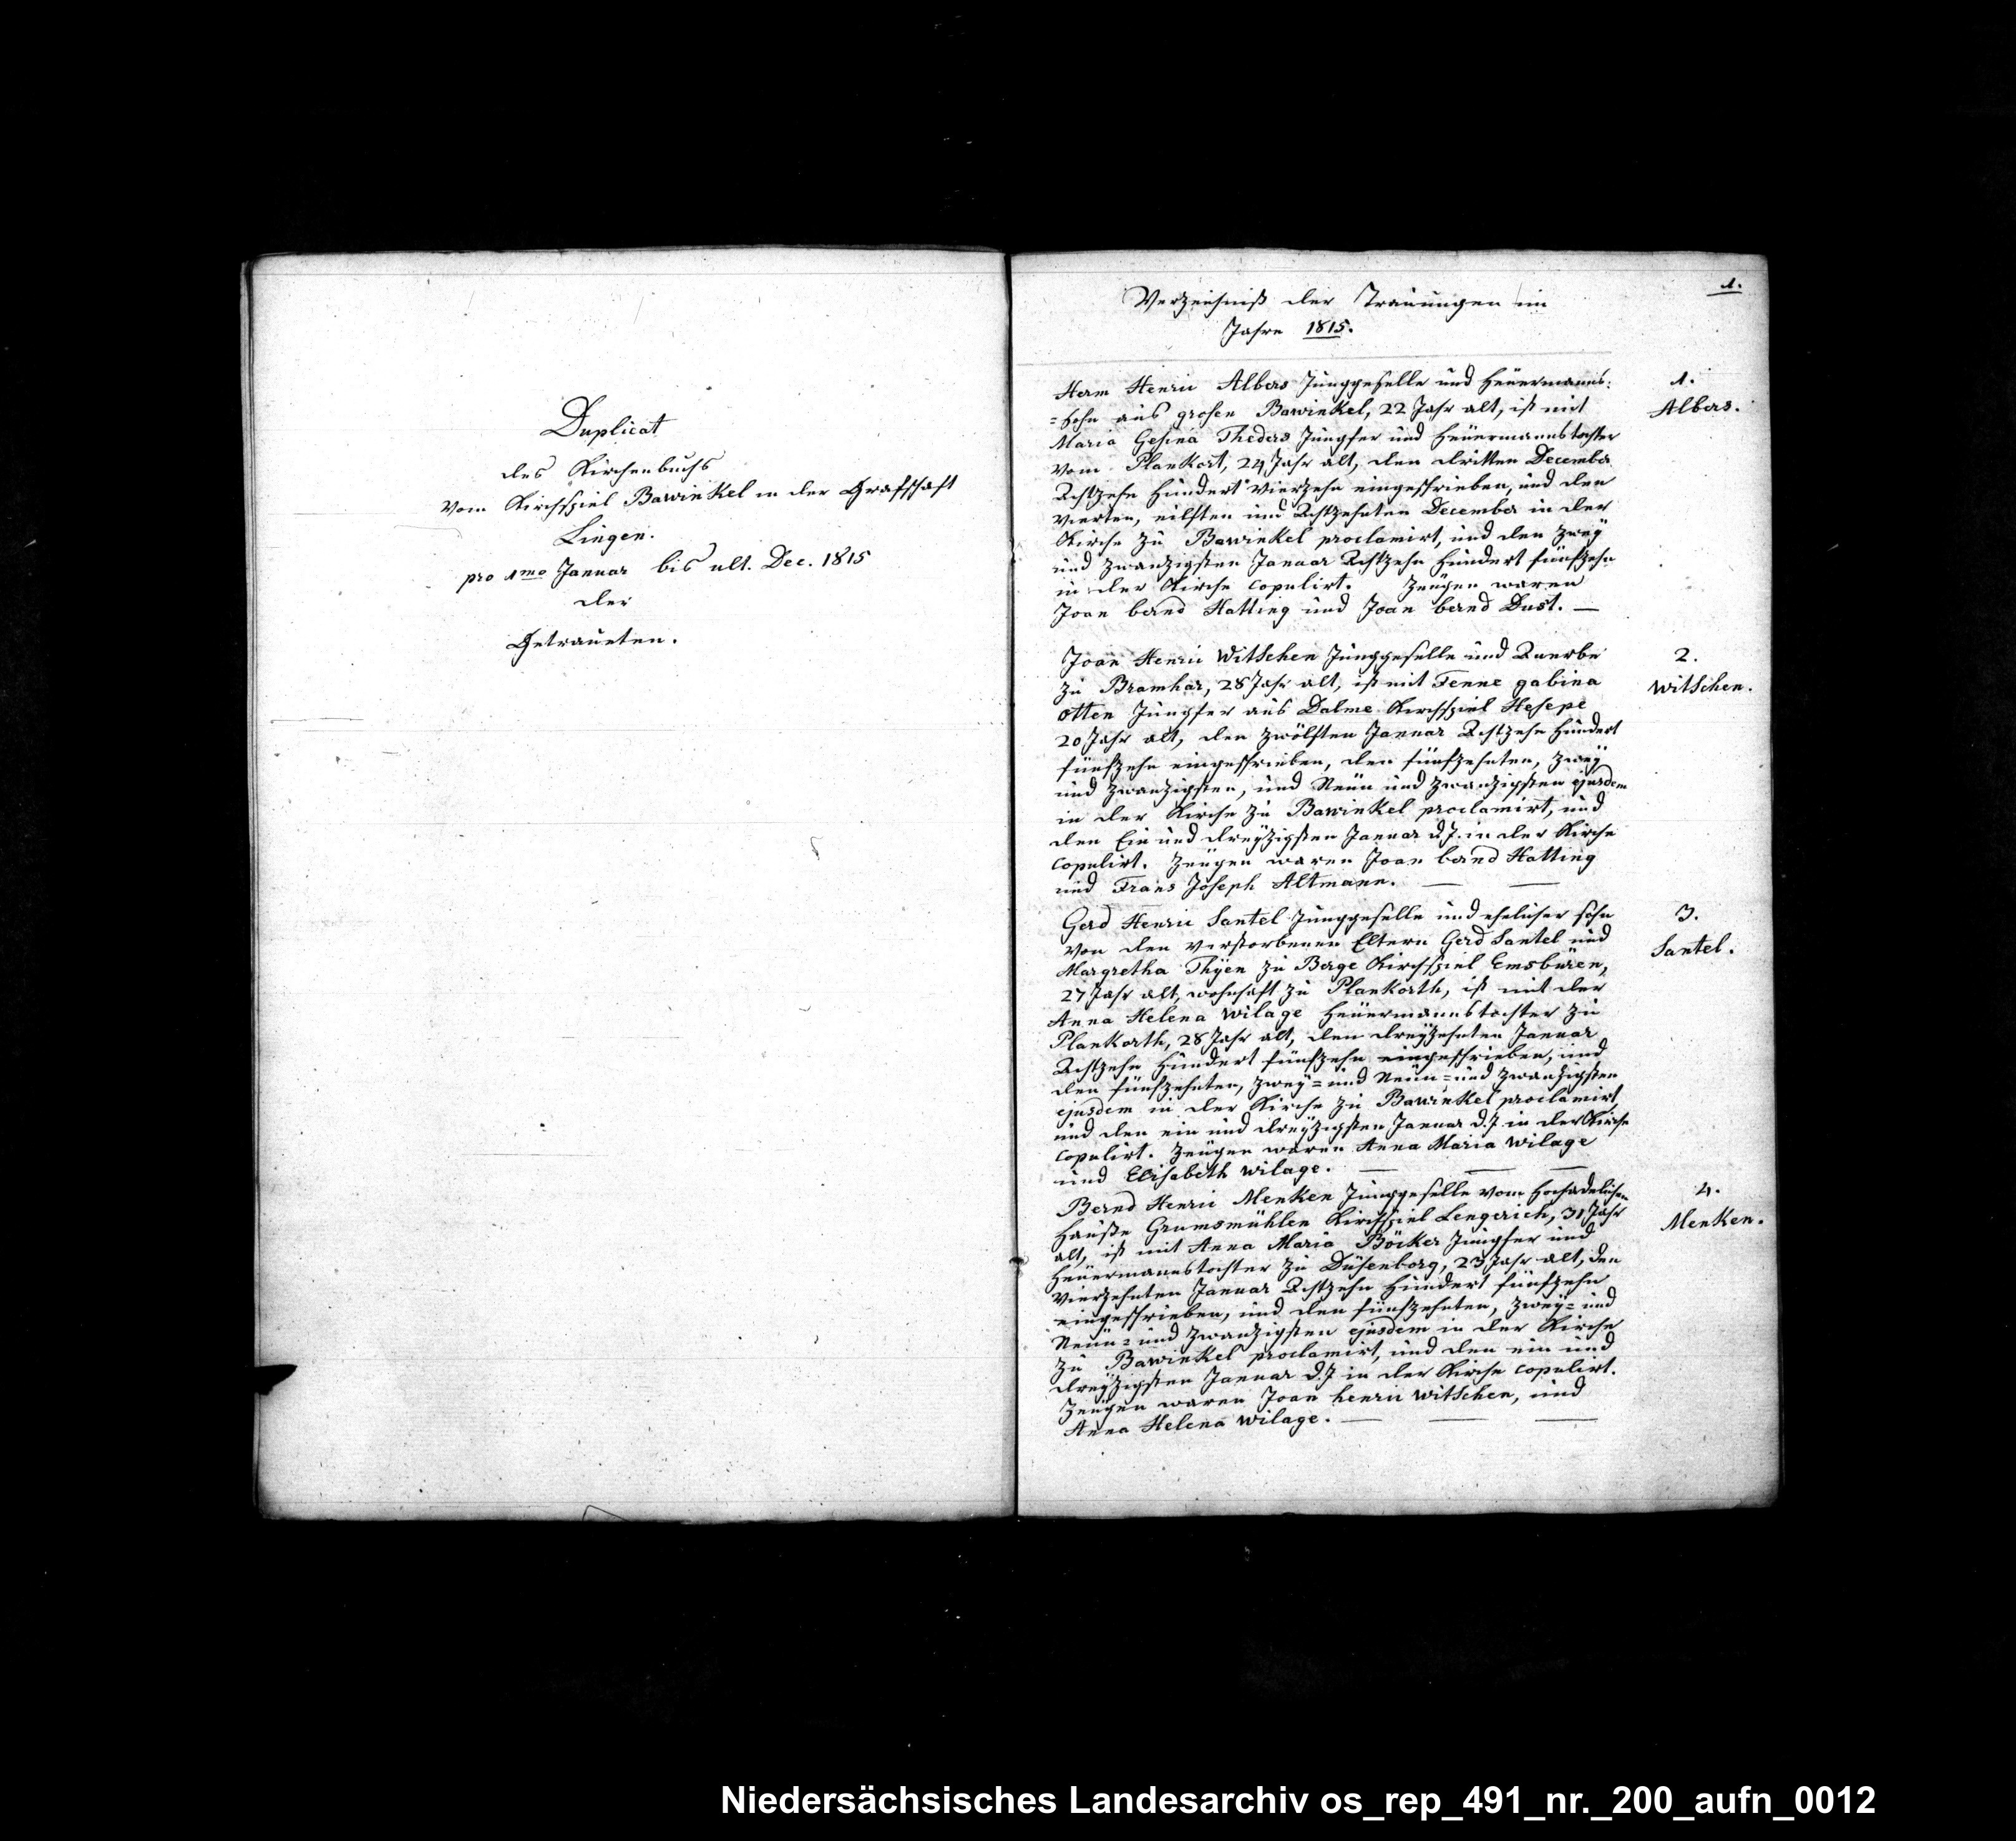 Duplicat
des Kirchenbuchs
vom Kirchspiel Bawinkel in der Grafschaft
Lingen.
pro 1mo Januar bis ult. Dec. 1815
der
Getraueten.
1.
Verzeichniß der Trauungen im
Jahre 1815.
Herm Henric Albers Junggeselle und Heuermanns:
=sohn aus grosen Bawinkel, 22 Jahr alt, ist mit
Maria Gesina Theders Jungfer und Heuermannstochter
vom Plankort, 24 Jahr alt, den dritten December
Achtzehn Hundert Vierzehn eingeschrieben, und den
vierten, eilften und Achtzehnten December in der
Kirche zu Bawinkel proclamirt, und den zwey
und zwanzigsten Januar Achtzehn Hundert fünfzehn
in der Kirche copulirt. Zeugen waren
Joan bernd Hatting und Joan bernd Dust. —
1.
Albers.
Joan Henric Witschen Junggeselle und Anerbe
zu Bramhar, 28 Jahr alt, ist mit Fenne gabina
otten Jungfer aus Dalme Kirchspiel Hesepe
20 Jahr alt, den zwölften Januar Achtzehn Hundert
fünfzehn eingeschrieben, den fünfzehnten, zwey
und zwanzigsten, und Neun und zwanzigsten ejusdem
in der Kirche zu Bawinkel proclamirt, und
den Ein und dreyzigsten Januar d.J. in der Kirche
copulirt. Zeugen waren Joan bernd Hatting
und Frans Joseph Altmann. — —
2.
Witschen.
Gerd Henric Santel Junggeselle und ehelicher sohn
von den verstorbenen Eltern Gerd Santel und
Margretha Thÿen zu Berge Kirchspiel Emsbüren,
27 Jahr alt, wohnhaft zu Plankorth, ist mit der
Anna Helena Wilage Heuermannstochter zu
Plankorth, 28 Jahr alt, den dreyzehnten Januar
Achtzehn Hundert fünfzehn eingeschrieben, und
den fünfzehnten, zwey= und Neun= und zwanzigsten
ejusdem in der Kirche zu Bawinkel proclamirt
und den ein und dreyzigsten Januar d.J. in der Kirche
copulirt. Zeugen waren Anna Maria Wilage
und Elisabeth Wilage. — — —
3.
Santel.
Bernd Henric Menken Junggeselle vom Hochadelichen
Hauße Grumsmühlen Kirchspiel Lengerich, 31 Jahr
alt, ist mit Anna Maria Böcker Jungfer und
Heuermannstochter zu Düsenborg, 23 Jahr alt, den
vierzehnten Januar Achtzehn Hundert fünfzehn
eingeschrieben, und den fünfzehnten, zwey= und
Neun= und zwanzigsten ejusdem in der Kirche
zu Bawinkel proclamirt, und den ein und
dreyzigsten Januar d.J. in der Kirche copulirt.
Zeugen waren Joan henric Witschen, und
Anna Helena Wilage. — — —
4.
Menken.
Niedersächsisches Landesarchiv os_rep_491_nr._200_aufn_0012